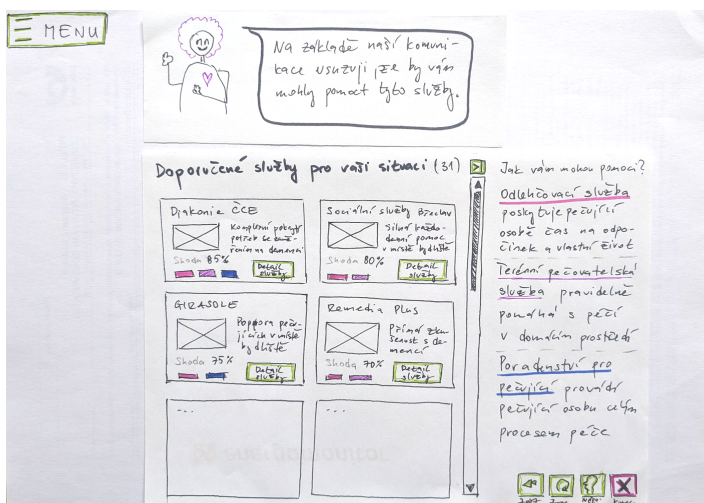 MENU
Na základě naší komuni-
kace usuzuji, že by vám
mohly pomoct tyto služby.
Doporučené služby pro vaši situaci (31)
Diakonie ČCE
Komplexní pokrytí
potřeb se zamě-
řením na demenci
Shoda 85%
Detail
služby
Sociální služby Břeclav
Silná každo-
denní pomoc
v místě bydliště
Shoda 80%
Detail
služby
GIRASOLE
Podpora peču-
jících v místě
bydliště
Shoda 75%
Detail
služby
Remedia Plus
Přímá zku-
šenost s de-
mencí
Shoda 70%
Detail
služby
...
...
Jak vám mohou pomoci?
Odlehčovací služba
poskytuje pečující
osobě čas na odpo-
činek a vlastní život
Terénní pečovatelská
služba pravidelně
pomáhá s péčí
v domácím prostředí
Poradenství pro
pečující provádí
pečující osobu celým
procesem péče